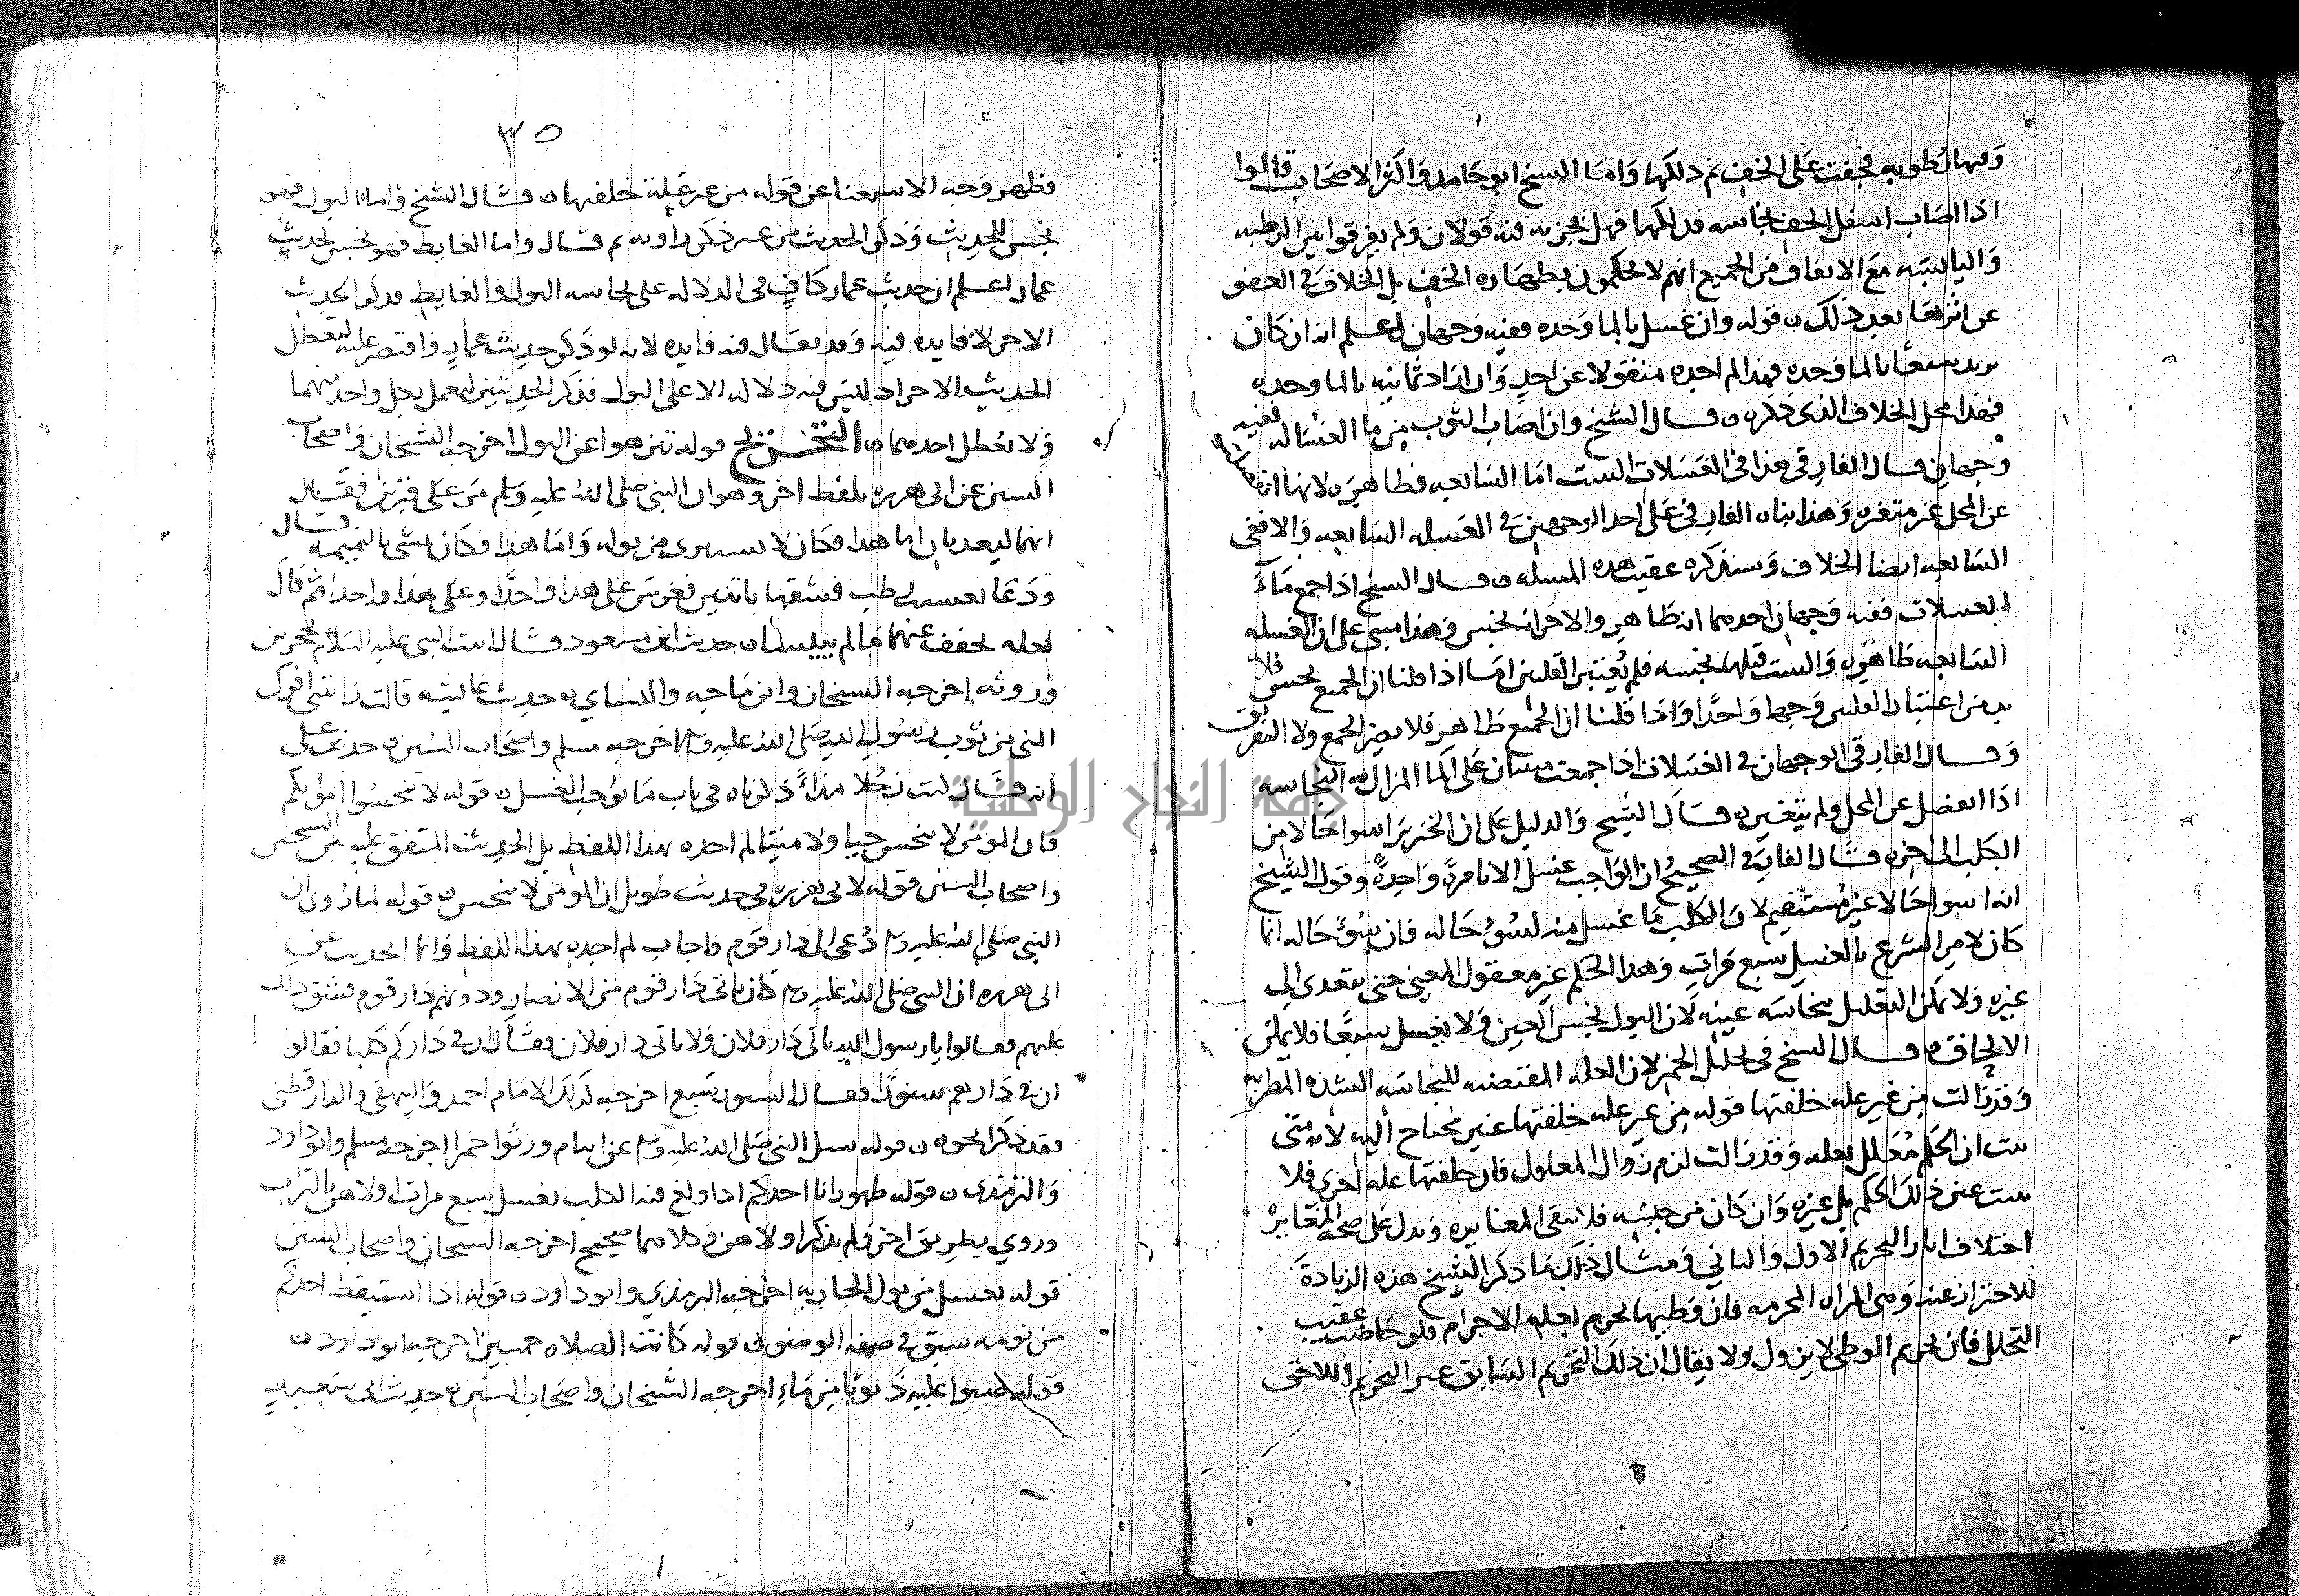 وفيها رطوبه فجفت على الخف ثم دلكها واما الشيخ ابو حامد واكثر الاصحاب قالوا
اذا اصاب اسفل الخف نجاسه فدلكها فهل تجزيه فيه قولان ولم يفرقوا بين الرطبه
واليابسه مع الاتفاق من الجميع انهم لا يحكمون بطهاره الخف بل الخلاف في العفو
عن اثرها بعد ذلك ن قوله وان غسل بالما وحده ففيه وجهان اعلم انه ان كان
يريد سبعا بالما وحده فهذا لم اجده منقولا عن احد وان اراد ثمانيه بالما وحده
فهذا محل الخلاف الذي ذكره ن قال الشيخ وان اصاب الثوب من ما الغساله ففيه
وجهان قال الفارقي هذا في الغسلات الست اما السابعه فطاهره لانها انفصلت
عن المحل غير متغيره وهذا بناه الفارقي على احد الوجهين في الغسله السابعه والا ففي
السابعه ايضا الخلاف وسنذكره عقيب هذه المسله ن قال الشيخ اذا جمع ماء
الغسلات ففيه وجهان احدهما انه طاهر والاخر انه نجس وهذا مبني على ان الغسله
السابعه طاهره والست قبلها نجسه فلم يعتبر القلتين اما اذا قلنا ان الجميع نجس فلا
بد من اعتبار القلتين وجها واحدا واذا قلنا ان الجميع طاهر فلا يضر الجمع ولا التفريق
وقال الفارقي الوجهان في الغسلات اذا جمعت مبنيان على الما المزال به النجاسه
اذا انفصل عن المحل ولم يتغير ن قال الشيخ والدليل على ان الخنزير اسوا حالا من
الكلب الى اخره قال الفارقي الصحيح ان الواجب غسل الانا مرة واحدة وقول الشيخ
انه اسوا حالا غير مستقيم لان الكلب ما غسل منه لسوء حاله فان سوء حاله انما
كان لامر الشرع بالغسل سبع مرات وهذا الحكم غير معقول المعنى حتى يتعدى الى
غيره ولا يمكن التعليل بنجاسه عينه لان البول نجس العين ولا يغسل سبعا فلا يمكن
الالحاق ن قال الشيخ في تحليل الخمر لان العله المقتضيه للنجاسه الشده المطربه
وقد زالت من غير عله خلفتها قوله من غير عله خلفتها غير محتاج اليه لانه متى
ثبت ان الحكم معلل بعله وقد زالت لزم زوال المعلول فان خلفتها عله اخرى فلا
يثبت عين ذلك الحكم بل غيره وان كان من جنسه فلا ينفي المغايره ويدل على صحه المغايره
اختلاف اثار التحريم الاول والثاني ومثال ذلك ما ذكر الشيخ هذه الزيادة
للاحتراز عنه وهي المراه المحرمه فان وطيها يحرم لعله الاحرام فلو حاضت عقيب
التحلل فان تحريم الوطي لا يزول ولا يقال ان ذلك التحريم السابق غير التحريم اللاحق
٣٥
فظهر وجه الاستغنا عن قوله من غير علة خلفتها ن قال الشيخ واما البول فهو
نجس للحديث وذكر الحديث من غير ذكر راويه ثم قال واما الغايط فهو نجس لحديث
عمار اعلم ان حديث عمار كاف في الدلاله على نجاسه البول والغايط فذكر الحديث
الاخر لا فايده فيه وقد يقال فيه فايده لانه لو ذكر حديث عمار واقتصر عليه لتعطل
الحديث الاخر اذ ليس فيه دلاله الا على البول فذكر الحديثين ليعمل بكل واحد منهما
ولا يعطل احدهما ن التخريج قوله تنزهوا عن البول اخرجه الشيخان واصحاب
السنن عن ابي هريره بلفظ اخر وهو ان النبي صلى الله عليه وسلم مر على قبرين فقال
انهما ليعذبان اما هذا فكان لا يستبرى من بوله واما هذا فكان يمشي بالنميمه قال
ودعا بعسيب رطب فشقها باثنين فغرس على هذا واحدا وعلى هذا واحدا ثم قال
لعله يخفف عنهما ما لم ييبسا ن حديث ابن مسعود قال اتيت النبي عليه السلام بحجرين
وروثه اخرجه الشيخان وابن ماجه والنساي ن حديث عايشه قالت رايتني افرك
المني من ثوب رسول الله صلى الله عليه وسلم اخرجه مسلم واصحاب السنن ن حديث علي
انه قال كنت رجلا مذاء ذكرناه في باب ما يوجب الغسل ن قوله لا تنجسوا امواتكم
فان المومن لا ينجس حيا ولا ميتا لم اجده بهذا اللفظ بل الحديث المتفق عليه من الشيخين
واصحاب السنن قوله لابي هريره في حديث طويل ان المومن لا ينجس ن قوله لما روي ان
النبي صلى الله عليه وسلم دعي الى دار قوم فاجاب لم اجده بهذا اللفظ وانما الحديث عن
ابي هريره ان النبي صلى الله عليه وسلم كان ياتي دار قوم من الانصار ودونهم دار قوم فشق ذلك
عليهم فقالوا يا رسول الله تاتي دار فلان ولا تاتي دار فلان فقال ان في داركم كلبا فقالوا
ان في دارهم سنورا فقال السنور سبع اخرجه كذلك الامام احمد والبيهقي والدارقطني
فقد ذكر نحوه ن قوله سيل النبي صلى الله عليه وسلم عن ايتام ورثوا خمرا اخرجه مسلم وابو داود
والترمذي ن قوله طهور انا احدكم اذا ولغ فيه الكلب يغسل سبع مرات اولاهن بالتراب
وروي بطريق اخر ولم يذكر اولاهن وكلاهما صحيح اخرجه الشيخان واصحاب السنن
قوله يغسل من بول الجاريه اخرجه الترمذي وابو داود ن قوله اذا استيقظ احدكم
من نومه سبق في صفه الوضوء ن قوله كانت الصلاه خمسين اخرجه ابو داود ن
قوله صبوا عليه ذنوبا من ماء اخرجه الشيخان واصحاب السنن ن حديث ابي سعيد
جامعة النجاح الوطنية